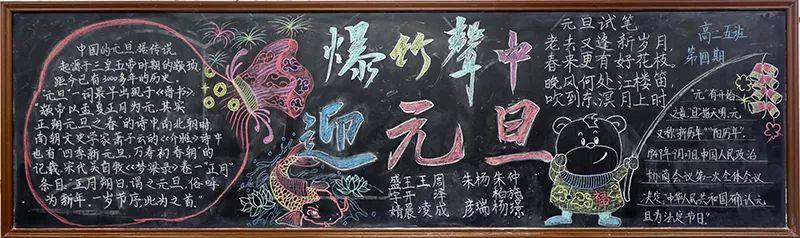 中国的元旦据传说
起源于三皇五帝时期的颛顼,
距今已有3000多年的历史。
“元旦”一词最早出现于《晋书》:
“颛帝以孟夏正月为元,其实
正朔元旦之春”的诗中。南北朝时,
南朝文学家萧子云的《介雅》诗中
也有“四季新元旦,万寿初春朝”的
记载。宋代吴自牧《梦粱录》卷一“正月”
条目:“正月朔日,谓之元旦,俗呼
为新年。一岁节序,此为之首。”
爆竹聲中
迎元旦
盛王王周
宇开 泽
婧晨凌成
朱杨朱仲
彦瑞杨璟
元旦试笔
老去又逢新岁月,
春来更有好花枝
晚风何处江楼笛,
吹到东溟月上时
高二五班
第四期
“元”有开始
之意,“旦”指天明,元
又称“新历年”“阳历年”。
1949年9月27日,中国人民政治
协商会议第一次全体会议
决定“中华人民共和国确认元
旦为法定节日。”
福